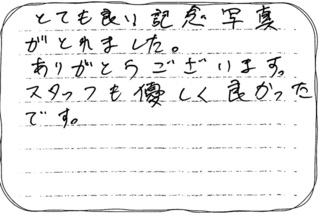 とても良い記念写真
がとれました。
ありがとうございます。
スタッフも優しく良かった
です。